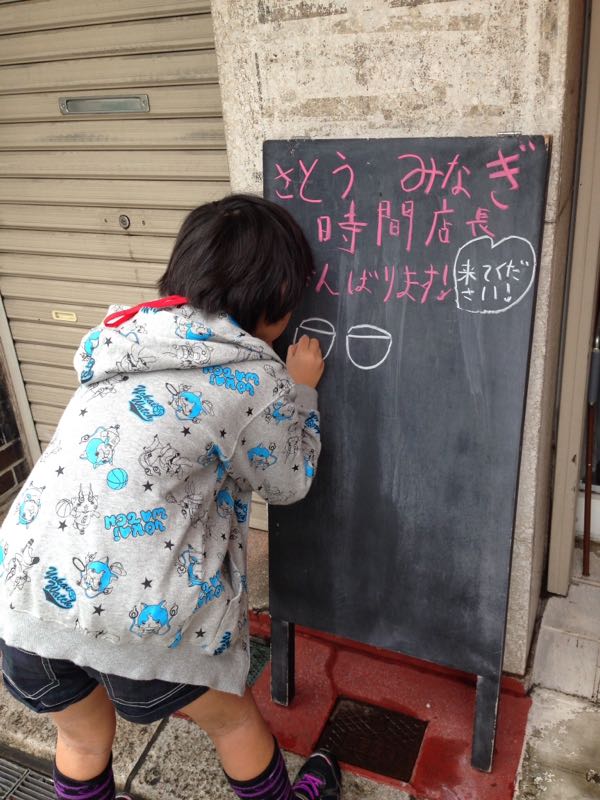 さとう みなぎ
時間店長
んばります!
来てくだ
さい!
YO-KAI
WATCH
YO-KAI
WATCH
YO-KAI
WATCH